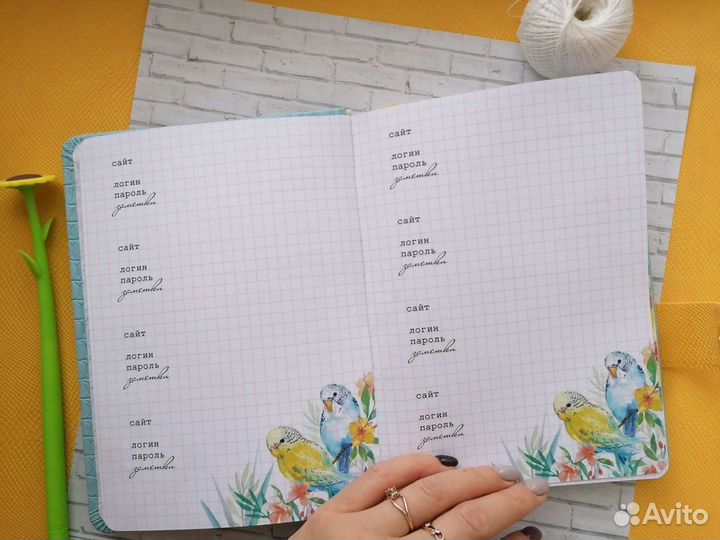 сайт
логин
пароль
заметки
сайт
логин
пароль
заметки
сайт
логин
пароль
заметки
сайт
логин
пароль
заметки
сайт
логин
пароль
заметки
сайт
логин
пароль
заметки
сайт
логин
пароль
заметки
сайт
логин
пароль
заметки
Avito